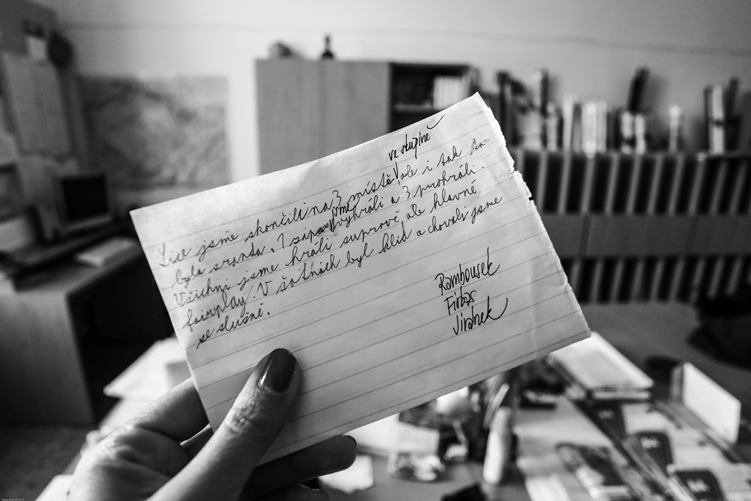 ve skupině
Sice jsme skončili na 3 místě ale i tak to
byla sranda. 1 zápas jsme vyhráli a 3 prohráli.
Všichni jsme hráli suprově ale hlavně
fairplay! V šatnách byl klid a chovali jsme
se slušně.
Rambousek
Firbas
Jiránek